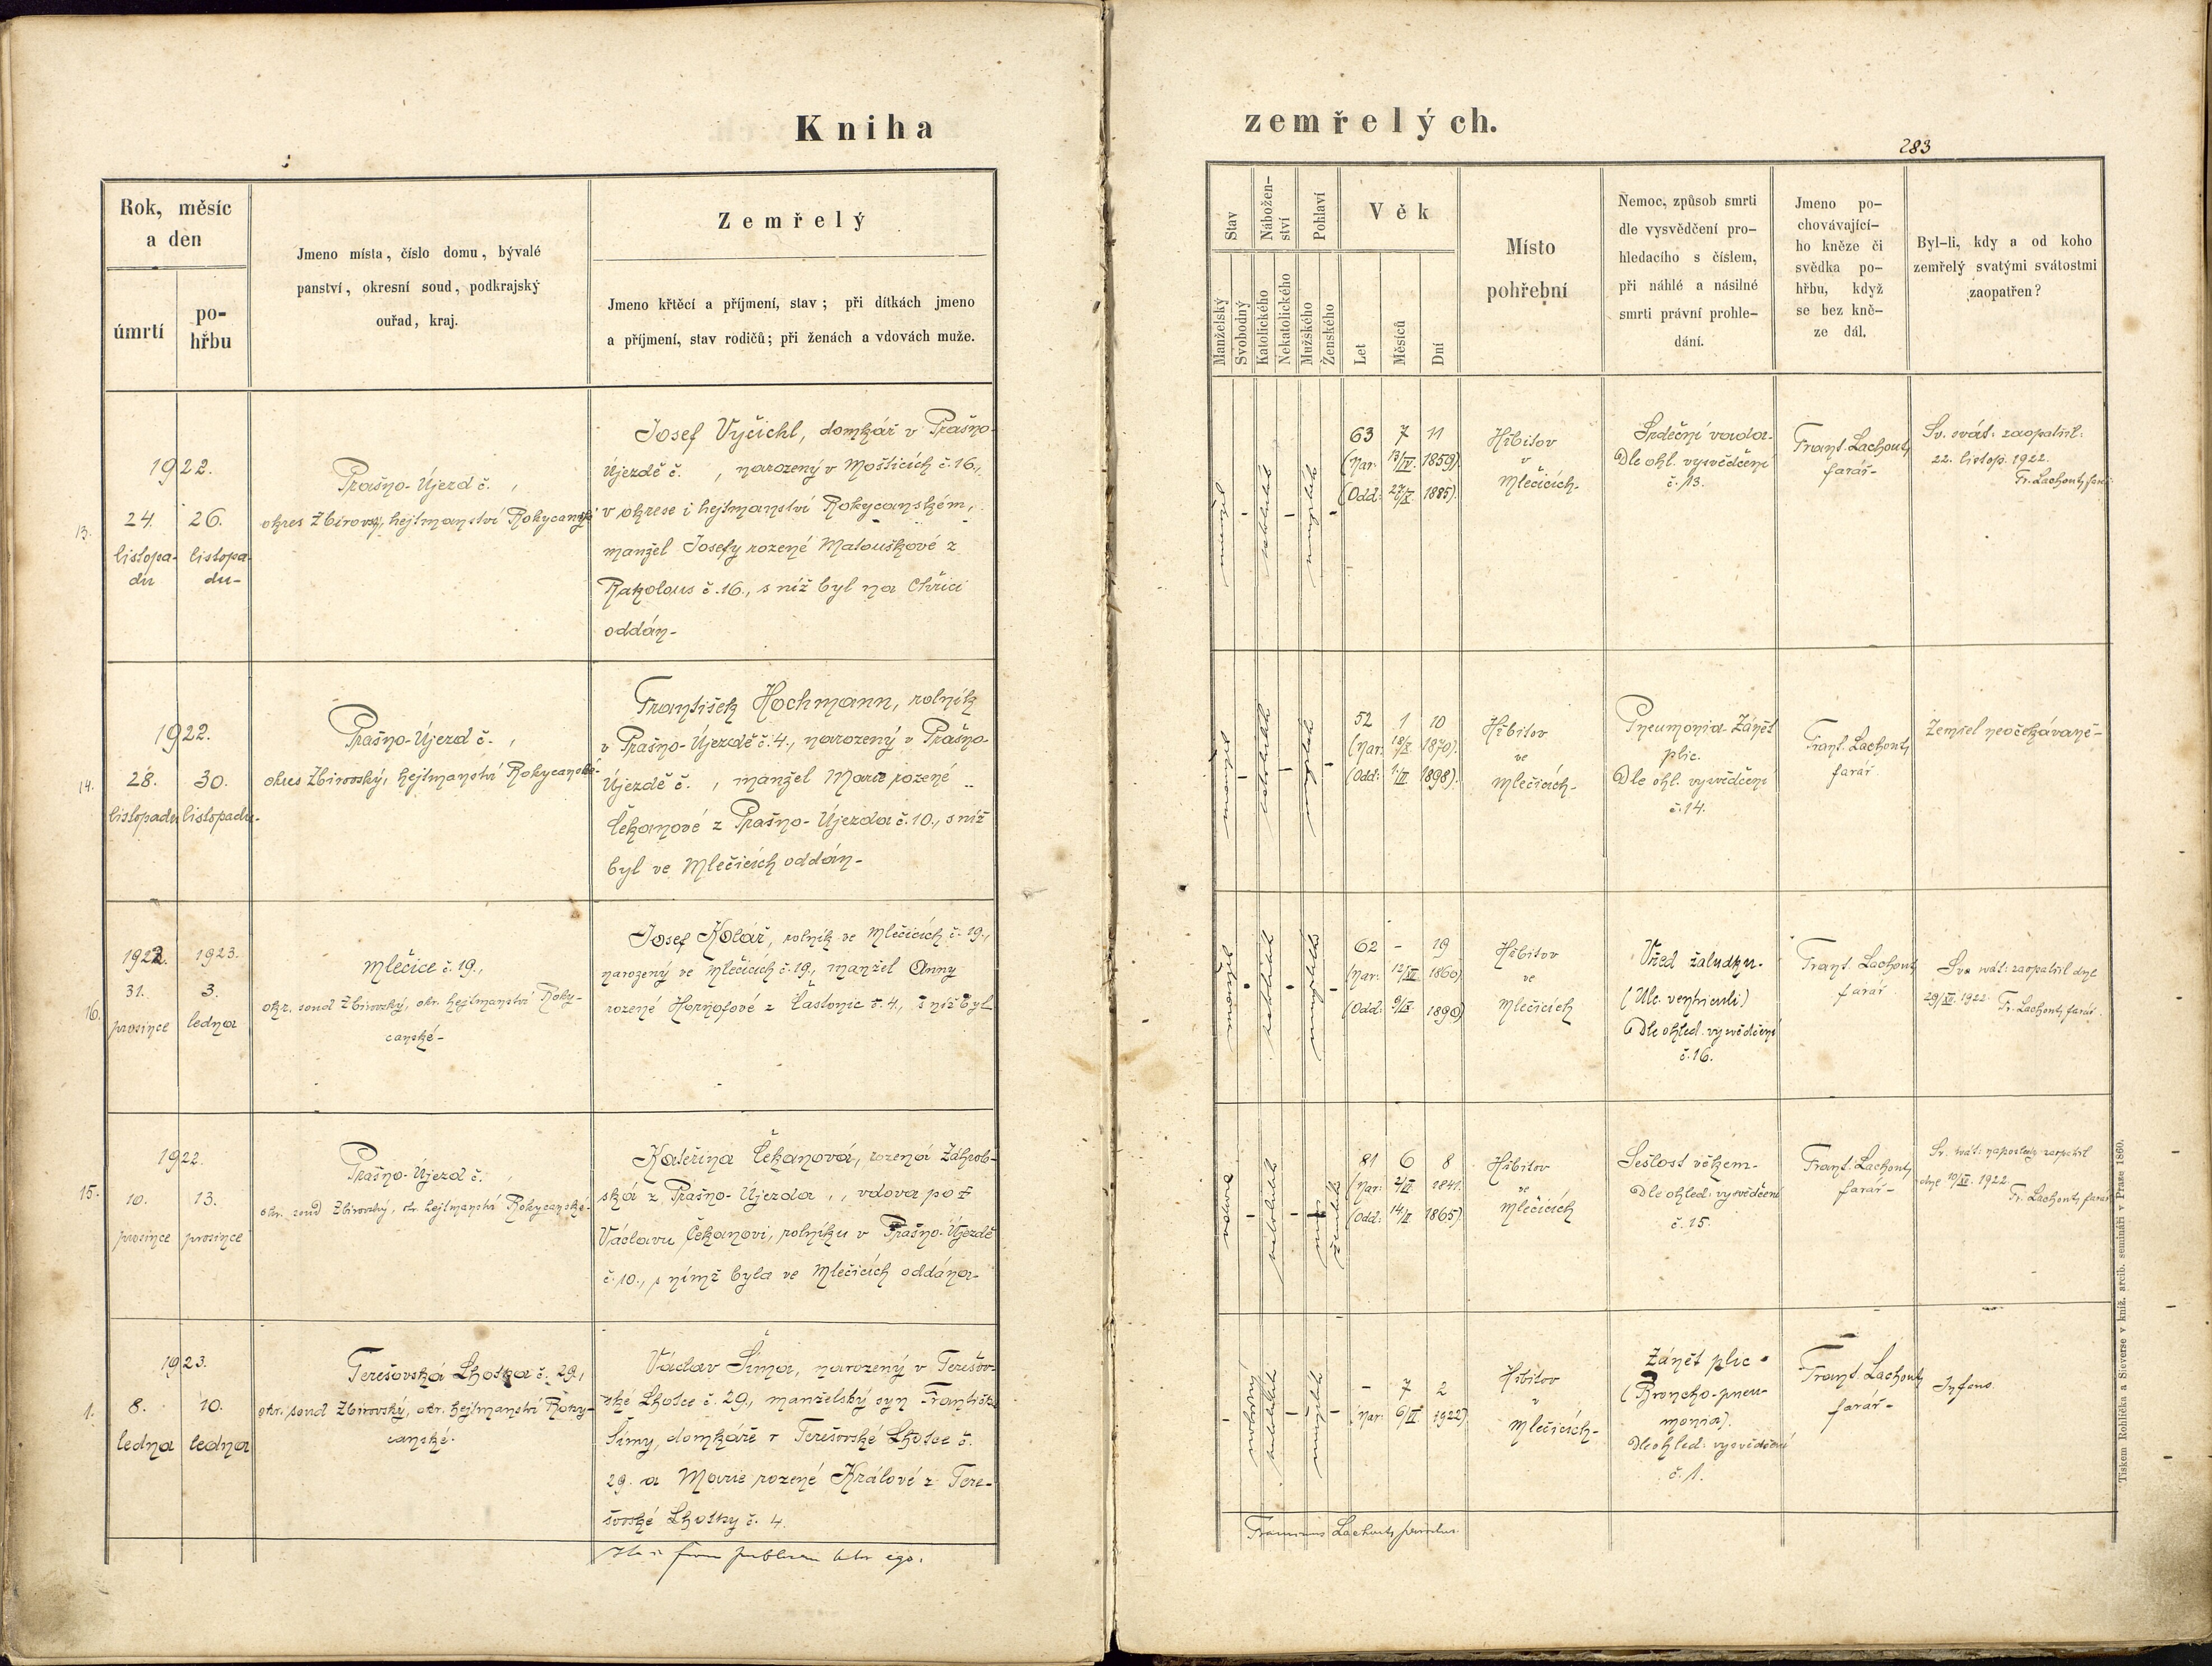 Kniha
Rok, měsíc
a den
úmrtí
po-
hřbu
Jmeno místa, číslo domu, bývalé
panství, okresní soud, podkrajský
ouřad, kraj.
Zemřelý
Jmeno křtěcí a příjmení, stav; při dítkách jmeno
a příjmení, stav rodičů; při ženách a vdovách muže.
13.
1922.
24.
listopa-
du
26.
listopa-
du-
Prašno-Újezd č. ,
okres Zbirovský, hejtmanství Rokycanské
Josef Vyčichl, domkář v Prašno-
Újezdě č. , narozený v Mošticích č. 16.,
v okrese i hejtmanství Rokycanském,
manžel Josefy rozené Matouškové z
Rakolous č. 16., s níž byl na Chříci
oddán-
14.
1922.
28.
listopadu
30.
listopadu-
Prašno-Újezd č. ,
okres Zbirovský, hejtmanství Rokycanské-
František Hochmann, rolník
v Prašno-Újezdě č. 4., narozený v Prašno-
Újezdě č. , manžel Marie rozené
Čekanové z Prašno-Újezda č. 10., s níž
byl ve Mlečicích oddán-
16.
1922.
31.
prosince
1923.
3.
ledna
Mlečice č. 19.,
okr. soud Zbirovský, okr. hejtmanství Roky-
canské-
Josef Kolář, rolník ve Mlečicích č. 19.,
narozený ve Mlečicích č. 19., manžel Anny
rozené Hornofové z Častonic č. 4., s níž byl
15.
1922.
10.
prosince
13.
prosince
Prašno-Újezd č. ,
okr. soud Zbirovský, okr. hejtmanství Rokycanské-
Kateřina Čekanová, rozená Záhrob-
ská z Prašno-Újezda , , vdova po †
Václavu Čekanovi, rolníku v Prašno-Újezdě
č. 10., s nímž byla ve Mlečicích oddána-
1.
1923.
8.
ledna
10.
ledna
Terešovská Lhotka č. 29,
okr. soud Zbirovský, okr. hejtmanství Roky-
canské-
Václav Šíma, narozený v Terešov-
ské Lhotce č. 29., manželský syn Františka
Šímy, domkáře v Terešovské Lhotce č.
29. a Marie rozené Králové z Tere-
šovské Lhotky č. 4.
zemřelých.
283
Stav
Nábožen-
ství
Pohlaví
Věk
Manželský
Svobodný
Katolického
Nekatolického
Mužského
Ženského
Let
Měsíců
Dní
Místo
pohřební
Nemoc, způsob smrti
dle vysvědčení pro-
hledacího s číslem,
při náhlé a násilné
smrti právní prohle-
dání.
Jmeno po-
chovávající-
ho kněze či
svědka po-
hřbu, když
se bez kně-
ze dál.
Byl-li, kdy a od koho
zemřelý svatými svátostmi
zaopatřen?
63 7 11
(Nar: 13/IV. 1859)
(Odd: 27/X. 1885)
Hřbitov
v
Mlečicích-
Srdeční vada-
Dle ohl. vysvědčení
č. 13.
Frant. Lachout,
farář-
Sv. svát: zaopatřil:
22. listop. 1922.
Fr. Lachout, farář
52 1 10
(Nar: 18/X. 1870)
(Odd: 1898)
Hřbitov
ve
Mlečicích-
Pneumonia-Zánět
plic.
Dle ohl. vysvědčení
č. 14.
Frant. Lachout,
farář
Zemřel neočekávaně-
62 - 19
(Nar: 12/XII 1860)
(Odd: 1890)
Hřbitov
ve
Mlečicích
Vřed žaludku.
(Ulc. ventriculi)
Dle ohled. vysvědčení
č. 16.
Frant. Lachout
farář
Sv. svát: zaopatřil dne
29/XII. 1922. Fr. Lachout, farář.
81 6 8
(Nar: 2/VI 1841.
(Odd: 14/II 1865)
Hřbitov
ve
Mlečicích
Sešlost věkem-
Dle ohled: vysvědčení
č. 15.
Frant. Lachout,
farář-
Sv. svát: naposledy zaopatřil
dne 10/XII. 1922.
Fr. Lachout, farář
- 7 2
(Nar: 6/VI 1922)
Hřbitov
v
Mlečicích-
Zánět plic
(Broncho-pneu-
monia).
Dle ohled: vysvědčení
č. 1.
Frant. Lachout
farář-
Infans
Tiskem Rohlíčka a Sieverse v kníž. arcib. semináři v Praze 1860.